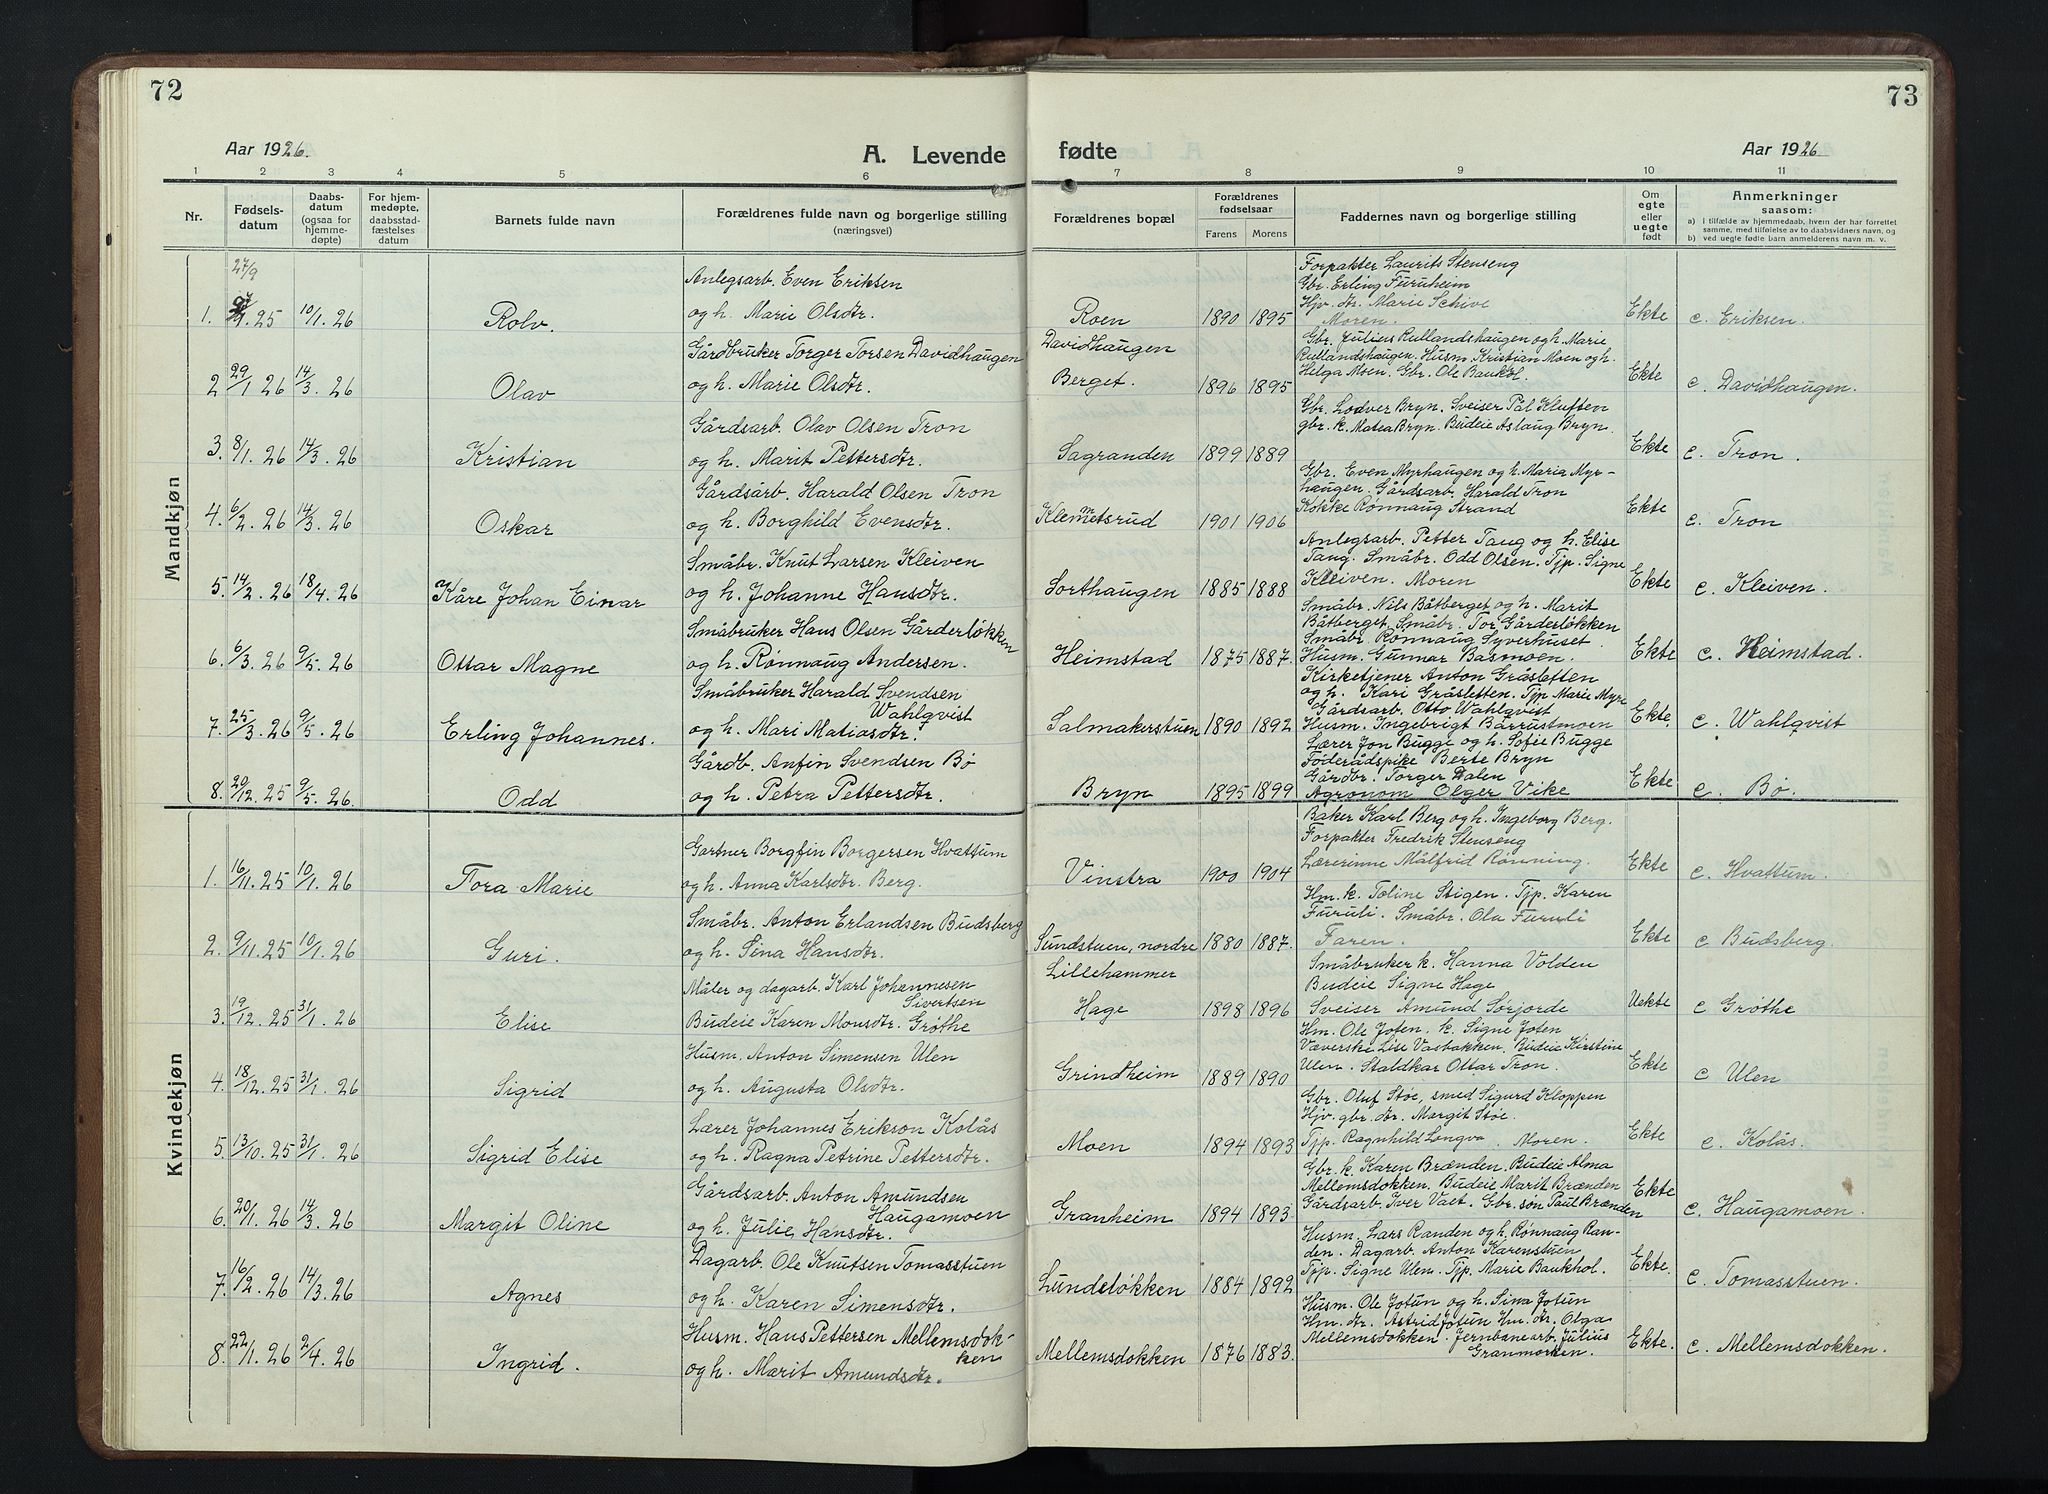 72
73
Aar 1926.
A. Levende
fødte
Aar 1926
1 2 3 4 5 6 7 8 9 10 11
Nr.
Fødsels-
datum
Daabs-
datum
(ogsaa for
hjemme-
døpte)
For hjem-
medøpte,
daabsstad-
fæstelses
datum
Barnets fulde navn
Forældrenes fulde navn og borgerlige stilling
(næringsvei)
Forældrenes bopæl
Forældrenes
fødselsaar
Farens Morens
Faddernes navn og borgerlige stilling
Om
egte
eller
uegte
født
Anmerkninger
saasom:
a) i tilfælde av hjemmedaab, hvem der har forrettet
samme, med tilføielse av to daabsvidners navn, og
b) ved uegte fødte barn anmelderens navn m. v.
Mandkjøn
27/9
1. 25 10/1. 26 Rolv.
Anlegsarb. Even Eriksen
og h. Marie Olsdtr.
Roen 1890 1895
Forpakter Laurits Stenseng
Gbr. Erling Furuheim
Hjv. dr. Marie Schive
Moren.
Ekte c. Eriksen.
2 29/1 26 14/3. 26 Olav
Gårdbruker Torger Torsen Davidhaugen
og h. Marie Olsdtr.
Davidhaugen
Berget. 1896 1895
Gbr. Julius Rullandshaugen og h. Marie
Rullandshaugen. Husm. Kristian Moen og h.
Helga Moen. Gbr. Ole Baukol.
Ekte c. Davidhaugen.
3. 8/1. 26 14/3. 26 Kristian
Gårdsarb. Olav Olsen Tron
og h. Marit Pettersdtr.
Sagranden 1899 1889
Gbr. Lodver Bryn. Sveiser Pål Kluften
gbr. k. Matea Bryn. Budeie Aslaug Bryn.
Ekte c. Tron.
4. 6/2. 26 14/3. 26 Oskar
Gårdsarb. Harald Olsen Tron
og h. Borghild Evensdtr.
Klemmetsrud 1901 1906
Gbr. Even Myrhaugen og h. Maria Myr-
haugen. Gårdsarb. Harald Tron
Kokke Rønnaug Strand
Ekte c. Tron
5. 14/2. 26 18/4. 26 Kåre Johan Einar
Småbr. Knut Larsen Kleiven
og h. Johanne Hansdtr.
Sorthaugen 1885 1888
Anlegsarb. Petter Taug og h. Elise
Taug. Småbr. Odd Olsen. Tjp. Signe
Kleiven. Moren
Ekte c. Kleiven.
6. 6/3. 26 9/5. 26 Ottar Magne
Småbruker Hans Olsen Gårderløkken
og h. Rønnaug Andersen.
Heimstad 1875 1887.
Småbr. Nils Båtberget og h. Marit
Båtberget. Småbr. Tor Gårderløkken
Småbr. Rønnaug Syverhuset.
Husm. Gunnar Basmoen.
Ekte c. Heimstad.
7. 25/3. 26 9/5. 26 Erling Johannes.
Småbruker Harald Svendsen
Wahlqvist
og h. Mari Matiasdtr.
Salmakerstuen 1890 1892
Kirketjener Anton Gråsletten
og h. Kari Gråsletten. Tjp Marie Myr
Gårdsarb. Otto Wahlqvist
Husm. Ingebrigt Bårrustmoen
Ekte. c. Wahlqvist
8. 20/12. 25 9/5. 26. Odd
Gårdb. Anfin Svendsen Bø
og h. Petra Pettersdtr.
Bryn 1895 1899
Lærer Jon Bugge og h. Sofie Bugge
Føderådspike Berte Bryn
Gårdbr. Torger Dalen
Agronom Olger Vike
Ekte c. Bø.
Kvindekjøn
1. 16/11. 25 10/1. 26 Tora Marie
Gartner Borgfin Borgersen Hvattum
og h. Anna Karlsdtr. Berg.
Vinstra 1900 1904
Baker Karl Berg og h. Ingeborg Berg.
Forpakter Fredrik Stenseng
Lærerinne Målfrid Rønning.
Ekte c. Hvattum.
2. 9/11. 25 10/1. 26 Guri.
Småbr. Anton Erlandsen Budsberg
og h. Sina Hansdtr.
Sundstuen, nordre 1880 1887.
Hm. k. Toline Stigen. Tjp. Karen
Furuli. Småbr. Ola Furuli
Faren.
Ekte c Budsberg.
3. 19/12. 25 31/1. 26 Elise
Måler og dagarb. Karl Johannesen
Sivertsen
Budeie Karen Monsdtr. Grøthe
Lillehammer
Hage 1898 1896
Småbruker k. Hanna Volden
Budeie Signe Hage
Sveiser Amund Sørjorde
Uekte c Grøthe
4. 18/12. 25 31/1. 26 Sigrid
Husm. Anton Simensen Ulen
og h. Augusta Olsdtr.
Grindheim 1889 1890
Hm. Ole Joten. k. Signe Joten
Væverske Lise Vasbakken. Budeie Kirstine
Ulen. Staldkar Ottar Tron.
Ekte c Ulen
5. 13/10. 25 31/1. 26 Sigrid Elise
Lærer Johannes Erikson Kolås
og h. Ragna Petrine Pettersdtr.
Moen 1894 1893
Gbr. Oluf Støe, smed Sigurd Kloppen
Hjv. gbr. dtr. Margit Støe.
Tjp. Ragnhild Longva. Moren.
Ekte c. Kolås.
6. 20/1. 26 14/3. 26 Margit Oline
Gårdsarb. Anton Amundsen
Haugamoen
og h. Julie Hansdtr.
Granheim 1894 1893
Gbr. k. Karen Brænden. Budeie Alma
Mellemsdokken. Budeie Marit Brænden
Gårdsarb. Iver Vaet. Gbr. søn Paul Brænden
Ekte c. Haugamoen.
7. 16/2. 26 14/3. 26 Agnes
Dagarb. Ole Knutsen Tomasstuen
og h. Karen Simensdtr.
Lundeløkken 1884 1892
Husm. Lars Randen og h. Rønnaug Ran-
den. Dagarb. Anton Karenstuen
Tjp. Signe Ulen. Tjp. Marie Baukhol.
Ekte. c. Tomasstuen.
8. 22/1. 26 2/4. 26 Ingrid.
Husm. Hans Pettersen Mellemsdok-
ken
og h. Marit Amundsdtr.
Mellemsdokken 1876 1883.
Husm. Ole Jotun og h. Sina Jotun
Hm. dr. Astrid Jotun Hm. dr. Olga
Mellemsdokken. Jernbanearb. Julius
Granmorken.
Ekte. c. Mellemsdokken.